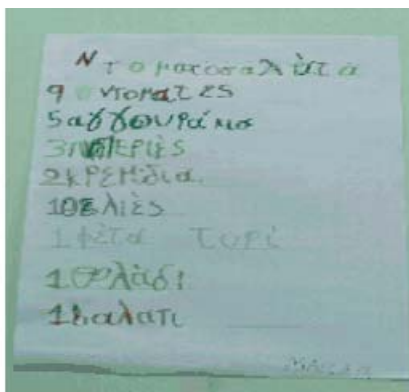 Ντοματοσαλάτα
9 ντοματες
5 αγγουράκια
3 πιΠΕΡΙÈS
2 κΡΕΜίδια
10 Ελιές
1 φέτα τυρί
1 λάδι
1 αλατι